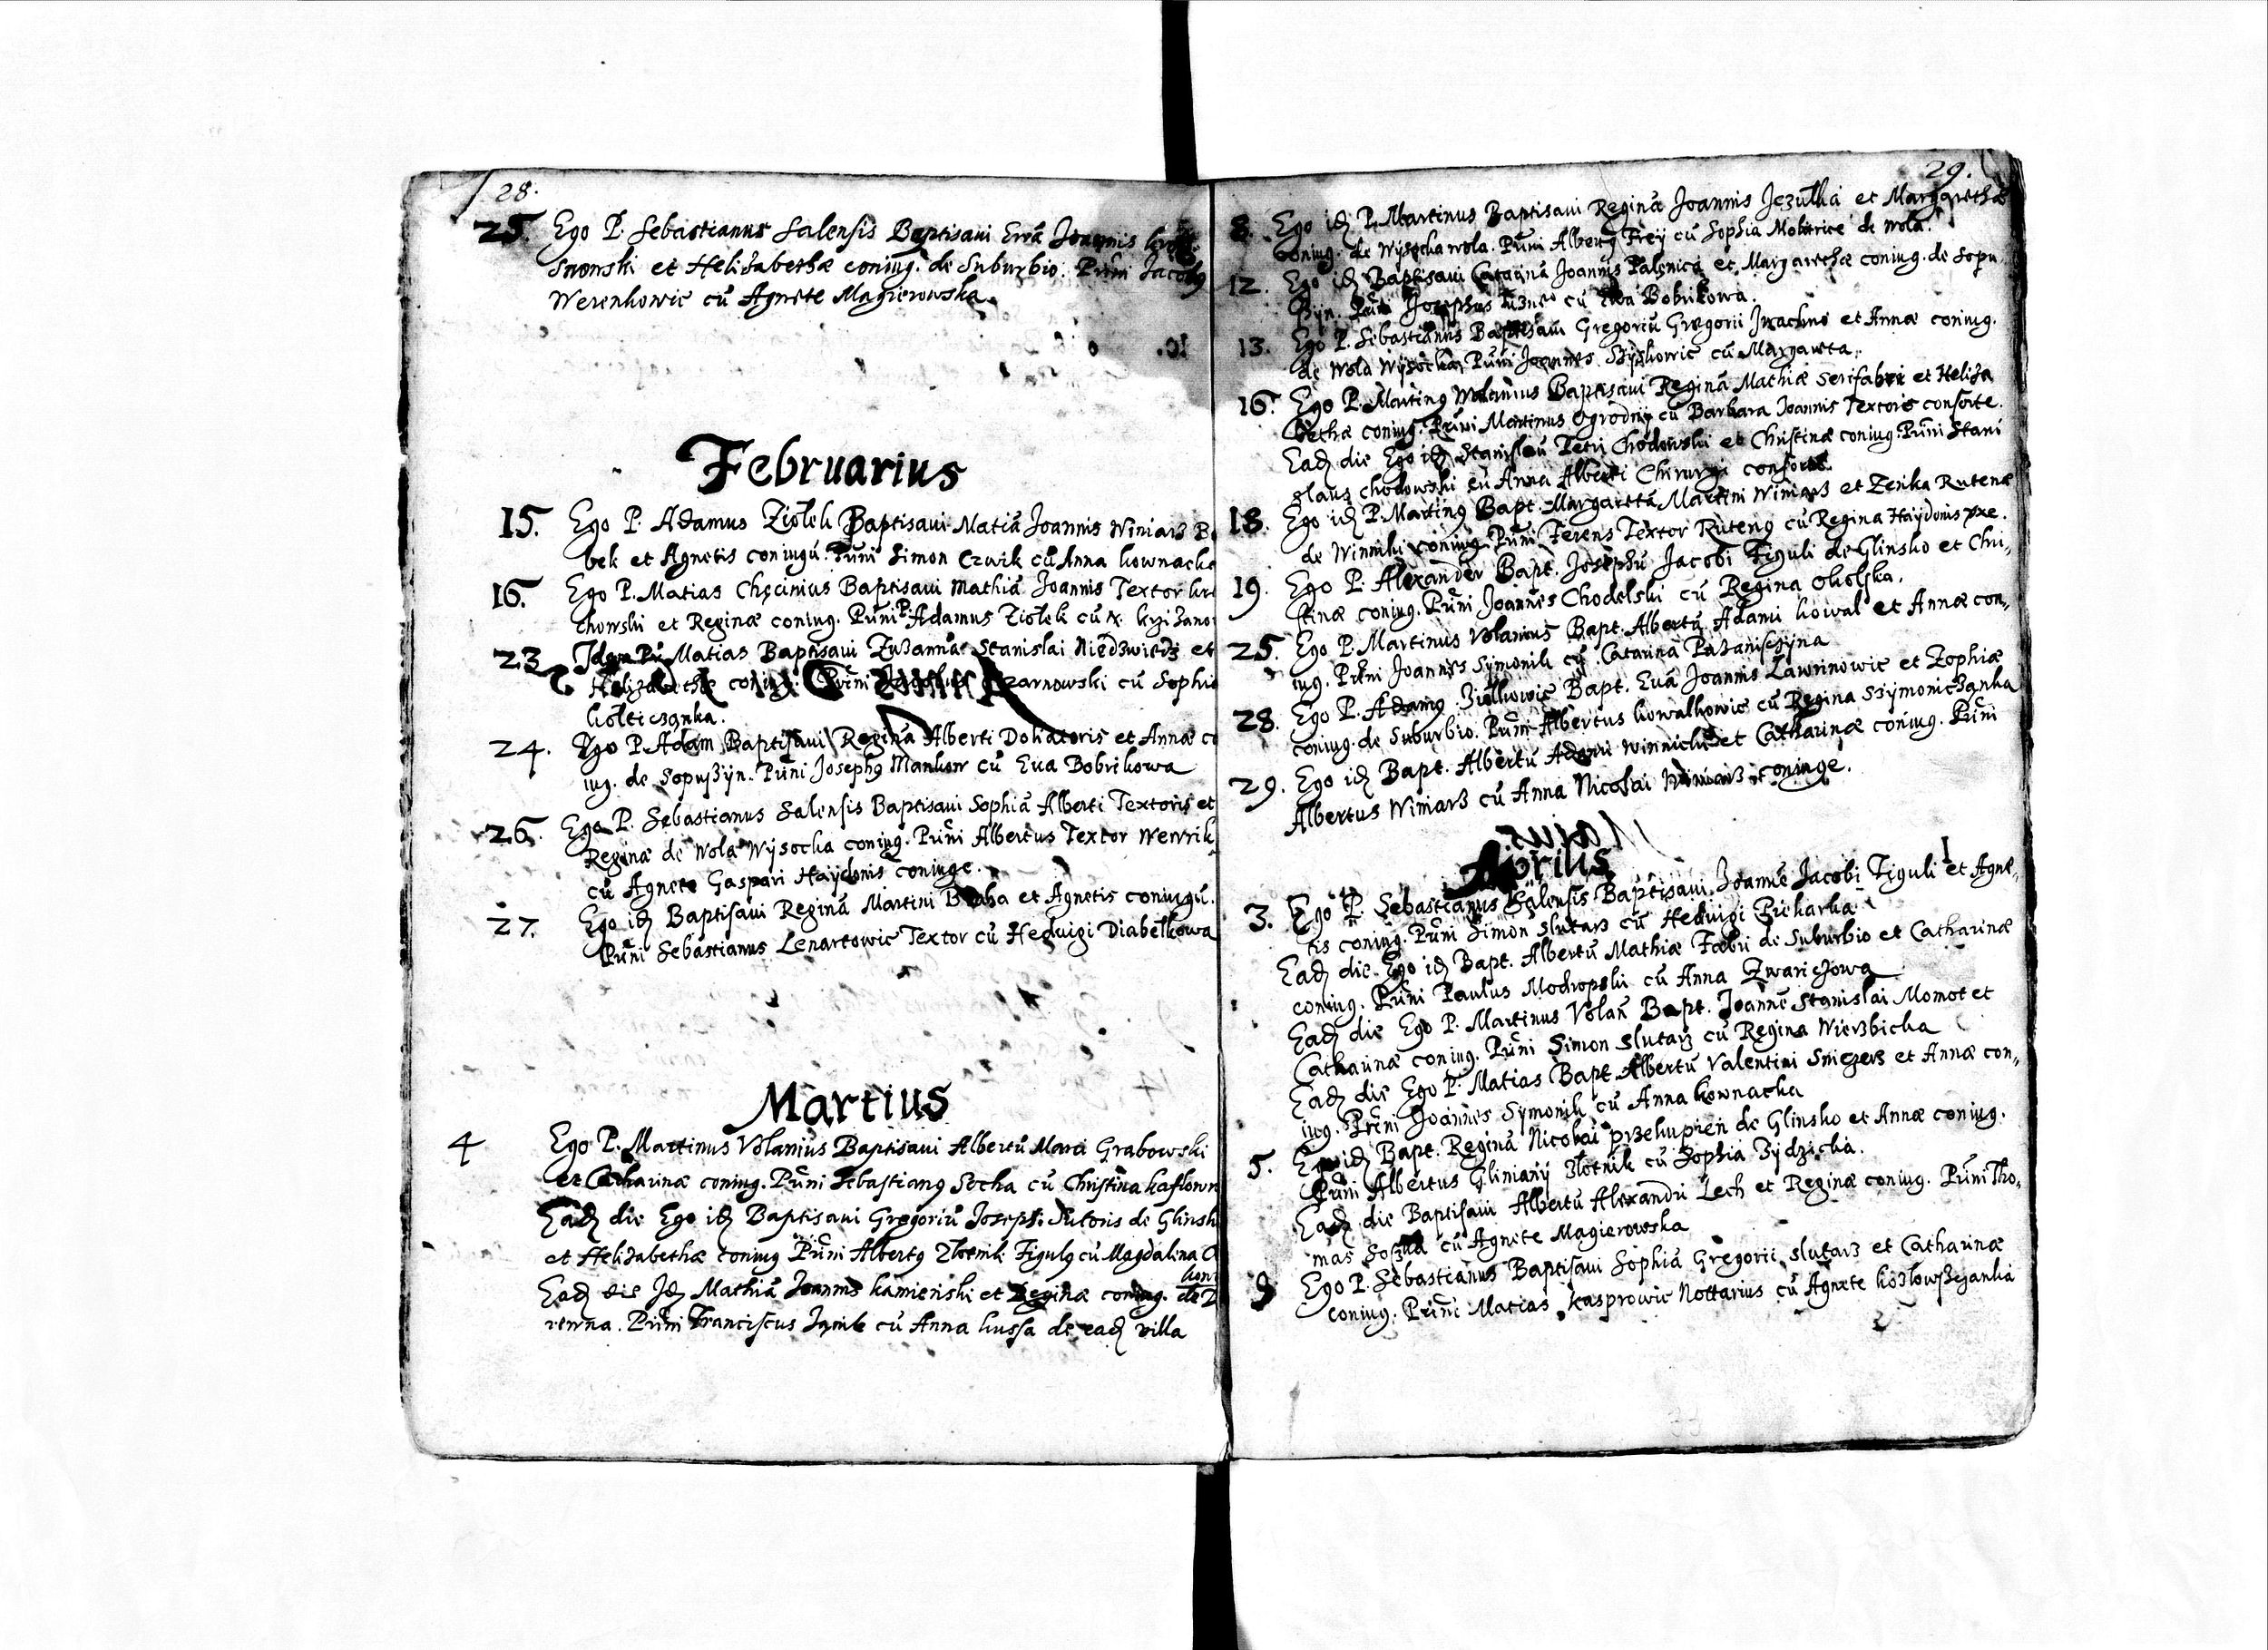 28.
25. Ego P. Sebastianus Salensis Baptisaui Evvã Joannis
Snowski et Helizabethæ coniug. de Suburbio. Pũni Jacobg
Werenkowic cũ Agnete Magierowska.
Februarius
15. Ego P. Adamus Ziołek Baptisaui Matiã Joannis Winiarz
bek et Agnetis coniugũ. Pũni Simon Czwik cũ Anna kownacka
16. Ego P. Matias Chęcinius Baptisaui Mathiã Joannis Textor
chowski et Reginæ coniug. Pũni P. Adamus Ziołek cũ
23 Matias Baptisaui Zuzannã Stanislai Niedzwiedz et
Helizabethæ coniug. Pũni Czarnowski cũ Sophia
kołticzanka.
24. Ego P. Adam Baptisaui Reginã Alberti Doliatoris et Annæ con
iug. de Sopuszyn. Pũni Josephg Mankow cũ Eua Bobrikowa
26. Ego P. Sebastianus Salensis Baptisaui Sophiã Alberti Textoris et
Reginæ de Wola Wysocka coniug. Pũni Albertus Textor
cũ Agnete Gaspari Haydonis coniuge.
27. Ego idz Baptisaui Reginã Martini et Agnetis coniugũ.
Pũni Sebastianus Lenartowic Textor cũ Heduigi Diabełkowa
Martius
4 Ego P. Martinus Volanius Baptisaui Albertũ Marci Grabowski
et Catharinæ coniug. Pũni Sebastiang Socha cũ Christina
Eadz die Ego idz Baptisaui Gregoriũ Josephi Sutoris de Glinsk
et Helizabethæ coniug Pũni Albertg Złotnik Figulg cũ Magdalina
Eadz die Idz Mathiã Joannis kamienski et Reginæ coniug. de
rewna. Pũni Franciscus cũ Anna kussa de eadz villa
29.
8. Ego idz P. Martinus Baptisaui Reginã Joannis Jezulka et Margarethæ
coniug. de Wysocka wola. Pũni Albertg Frey cũ Sophia Molitrice de Wola.
12. Ego idz Baptisaui Catarinã Joannis Palenica et Margarethæ coniug. de Sopu
szyn. Pũni Josephus cũ Ewa Bobrikowa.
13. Ego P. Sebastianus Baptisaui Gregoriũ Gregorii et Annæ coniug.
de Wola Wysocka Pũni Joannes Szyskowic cũ Margareta.
16. Ego P. Marting Wolanius Baptisaui Reginã Mathiæ Serifabri et Heliza
bethæ coniug. Pũni Martinus Ogrodny cũ Barbara Joannis Textoris consorte.
Eadz die Ego idz Stanislaũ Petri Chodowski et Christinæ coniug. Pũni Stani
slaus Chodowski cũ Anna Alberti Chirurgi consorte.
18. Ego idz P. Marting Bapt. Margarettã Martini Winiarz et Zenka Rutenæ
de Winniki coniug. Pũni Ferens Textor Ruteng cũ Regina Haydonis
19. Ego P. Alexander Bapt. Josephũ Jacobi Figuli de Glinsko et Chri„
stinæ coniug. Pũni Joannes Chodelski cũ Regina Okolska.
25. Ego P. Martinus Volanius Bapt. Albertũ Adami kowal et Annæ con„
iug. Pũni Joannes Symonik cũ Catarina
28. Ego P. Adamg Ziołkowic Bapt. Euã Joannis Lawrinowic et Zophiæ
coniug. de Suburbio. Pũni Albertus kowalkowic cũ Regina Szymoniczanka
29. Ego idz Bapt. Albertũ Adami Winnicki et Catharinæ coniug. Pũni
Albertus Winiarz cũ Anna Nicolai Winiarz coniuge.
Aprilis
3. Ego P. Sebastianus Salensis Baptisaui Joannẽ Jacobi Figuli et Agne„
tis coniug. Pũni Simon Slutarz cũ Heduigi Piekarka
Eadz die Ego idz Bapt. Albertũ Mathiæ Fabri de Suburbio et Catharinæ
coniug. Pũni Paulus Modropski cũ Anna Zwariczowa
Eadz die Ego P. Martinus Volañ Bapt. Joannẽ Stanislai Momot et
Catharinæ coniug. Pũni Simon Slutarz cũ Regina Wierzbicka
Eadz die Ego P. Matias Bapt. Albertũ Valentini et Annæ con„
iug. Pũni Joannes Symonik cũ Anna kownacka
5. Ego idz Bapt. Reginã Nicolai przekupien de Glinsko et Annæ coniug.
Pũni Albertus Gliniany Złotnik cũ Sophia Zydzicka.
Eadz die Baptisaui Albertũ Alexandri Lech et Reginæ coniug. Pũni Tho„
mas cũ Agnete Magierowska
9 Ego P. Sebastianus Baptisaui Sophiã Gregorii Slutarz et Catharinæ
coniug. Pũni Matias Kasprowic Nottarius cũ Agnete kozlowszczanka